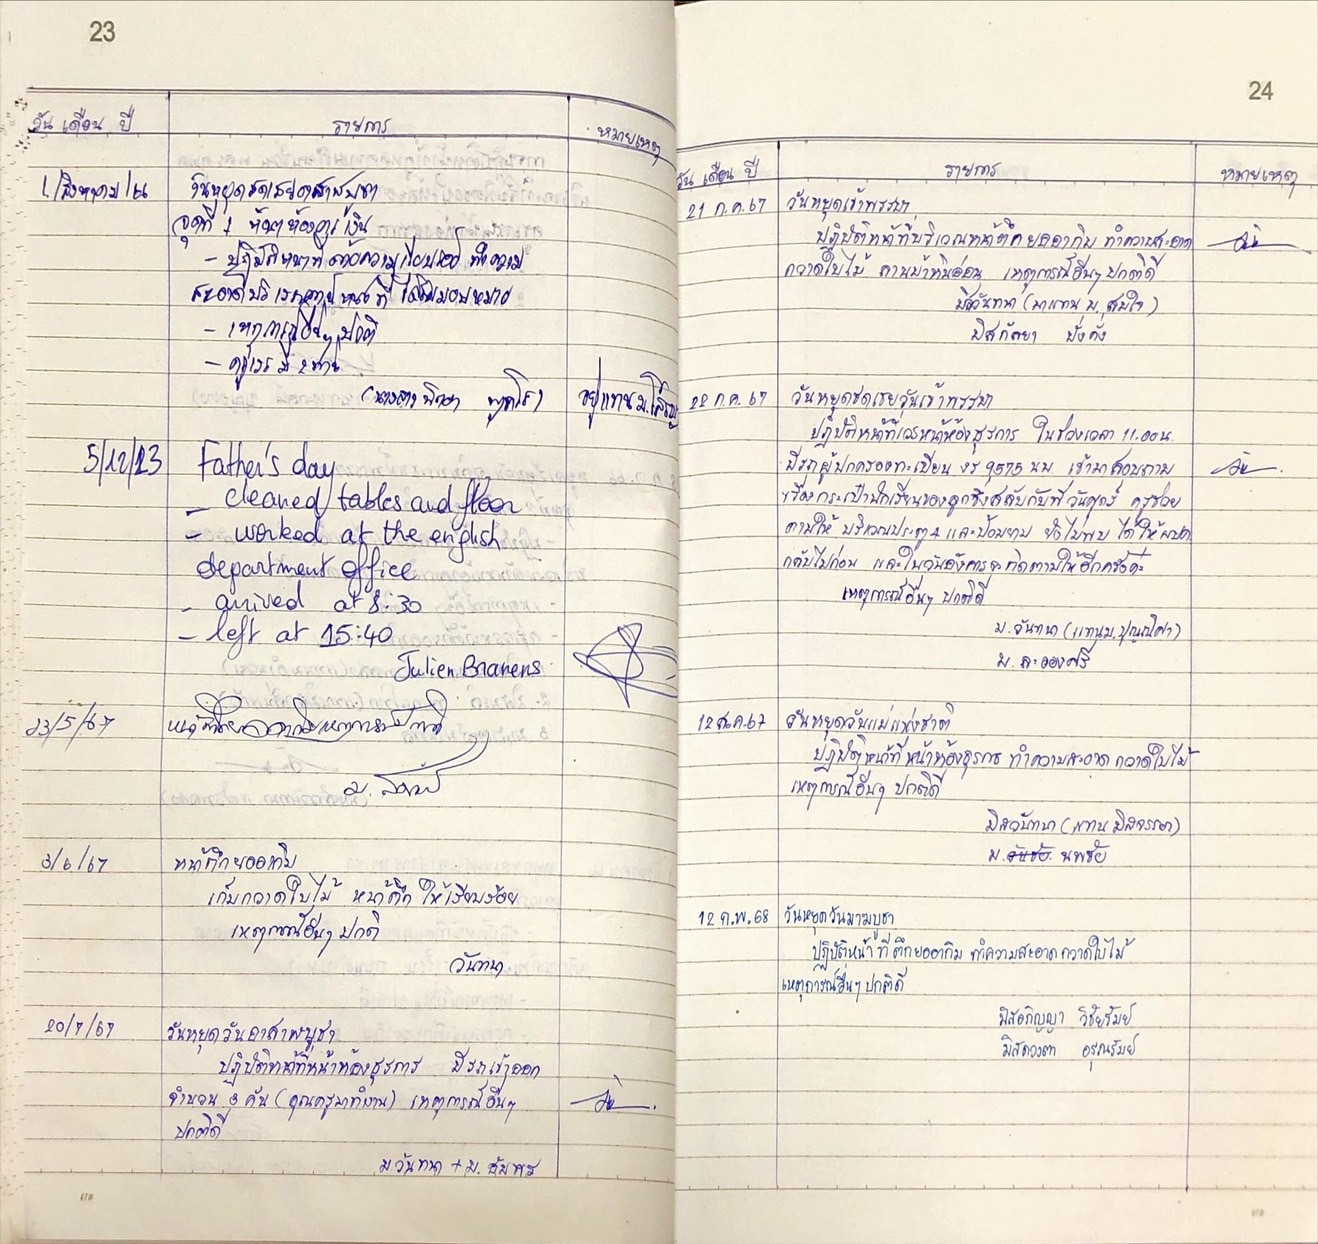 23
วัน เดือน ปี
รายการ
หมายเหตุ
1/สิงหาคม/66
วันหยุดชดเชยอาสาฬบูชา
จุดที่ 1 ห้อง
- ปฏิบัติหน้าที่ด้วยความเรียบร้อย ทำความ
สะอาดบริเวณ ที่ได้รับมอบหมาย
- เหตุการณ์อื่นๆ ปกติ
- ครูเวร มี 2 ท่าน
(นางสาว
อยู่แทน ม.
5/12/23
Father's day
- cleaned tables and floor
- worked at the english
department office
- arrived at 8:30
- left at 15:40
Julien
23/5/67
ม.
3/6/67
หน้าตึกยออากิม
เก็บกวาดใบไม้ หน้าตึก ให้เรียบร้อย
เหตุการณ์อื่นๆ ปกติ
วันทนา
20/7/67
วันหยุดวันอาสาฬบูชา
ปฏิบัติหน้าที่หน้าห้องธุรการ มีรถเข้าออก
จำนวน 3 คัน (คุณครูมาทำงาน) เหตุการณ์อื่นๆ
ปกติดี
ม.วันทนา + ม. อัมพร
24
วัน เดือน ปี
รายการ
หมายเหตุ
21 ก.ค. 67
วันหยุดเข้าพรรษา
ปฏิบัติหน้าที่บริเวณหน้าตึกยออากิม ทำความสะอาด
กวาดใบไม้ ลานม้าหินอ่อน เหตุการณ์อื่นๆ ปกติดี
มิสวันทนา (มาแทน ม. สมใจ)
มิสกัลยา
22 ก.ค. 67
วันหยุดชดเชยวันเข้าพรรษา
ปฏิบัติหน้าที่เวรหน้าห้องธุรการ ในช่วงเวลา 11.00 น.
มีรถผู้ปกครองทะเบียน งร 9575 นม เข้ามาสอบถาม
เรื่องกระเป๋านักเรียนของลูกซึ่งสลับกันที่วันศุกร์ ครูช่วย
ตามให้ บริเวณประตู 4 และป้อมยาม ยังไม่พบ ได้ให้
กลับไปก่อน และในวันอังคารจะติดตามให้อีกครั้งค่ะ
เหตุการณ์อื่นๆ ปกติดี
ม.วันทนา (แทน ม.
ม. ละอองศรี
12 ส.ค. 67
วันหยุดวันแม่แห่งชาติ
ปฏิบัติหน้าที่หน้าห้องธุรการ ทำความสะอาด กวาดใบไม้
เหตุการณ์อื่นๆ ปกติดี
มิสวันทนา (แทน มิสจรรยา)
ม. นพชัย
12 ก.พ. 68
วันหยุดวันมาฆบูชา
ปฏิบัติหน้าที่ตึกยออากิม ทำความสะอาด กวาดใบไม้
เหตุการณ์อื่นๆ ปกติดี
มิสอภิญญา วิชัยรัมย์
มิสดวงตา อรุณรัมย์